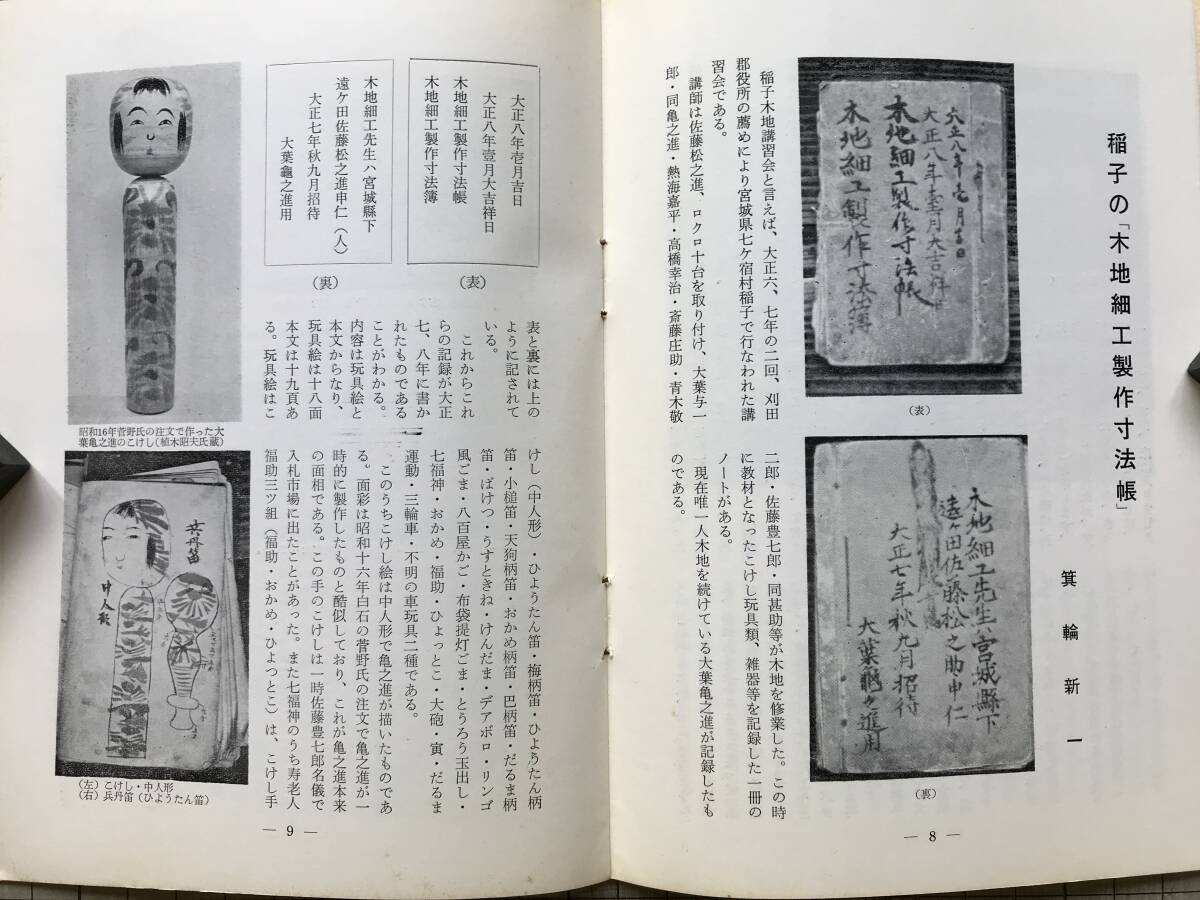 稲子の「木地細工製作寸法帳」
箕輪新一
大正八年壱月吉日
大正八年壹月大吉祥日
木地細工製作寸法帳
木地細工製作寸法簿
(表)
木地細工先生ハ宮城縣下
遠ケ田佐藤松之助申仁
大正七年秋九月招待
大葉龜之進用
(裏)
稲子木地講習会と言えば、大正六、七年の二回、刈田
郡役所の薦めにより宮城県七ケ宿村稲子で行なわれた講
習会である。
講師は佐藤松之進、ロクロ十台を取り付け、大葉与一
郎・同亀之進・熱海嘉平・高橋幸治・斎藤庄助・青木敬
二郎・佐藤豊七郎・同甚助等が木地を修業した。この時
に教材となったこけし玩具類、雑器等を記録した一冊の
ノートがある。
現在唯一人木地を続けている大葉亀之進が記録したも
のである。
— 8 —
大正八年壱月吉日
大正八年壹月大吉祥日
木地細工製作寸法帳
木地細工製作寸法簿
(表)
木地細工先生ハ宮城縣下
遠ケ田佐藤松之進申仁(人)
大正七年秋九月招待
大葉龜之進用
(裏)
昭和16年菅野氏の注文で作った大
葉亀之進のこけし(植木昭夫氏蔵)
表と裏には上の
ように記されて
いる。
これからこれ
らの記録が大正
七、八年に書か
れたものである
ことがわかる。
内容は玩具絵と
本文からなり、
玩具絵は十八面
本文は十九頁あ
る。玩具絵はこ
けし(中人形)・ひょうたん笛・梅柄笛・ひようたん柄
笛・小槌笛・天狗柄笛・おかめ柄笛・巴柄笛・だるま柄
笛・ばけつ・うすときね・けんだま・デアボロ・リンゴ
風ごま・八百屋かご・布袋提灯ごま・とうろう玉出し・
七福神・おかめ・福助・ひょっとこ・大砲・寅・だるま
運動・三輪車・不明の車玩具二種である。
このうちこけし絵は中人形で亀之進が描いたものであ
る。面彩は昭和十六年白石の菅野氏の注文で亀之進が一
時的に製作したものと酷似しており、これが亀之進本来
の面相である。この手のこけしは一時佐藤豊七郎名儀で
入札市場に出たことがあった。また七福神のうち寿老人
福助三ツ組(福助・おかめ・ひょっとこ)は、こけし手
兵丹笛
中人形
(左)こけし・中人形
(右)兵丹笛(ひようたん笛)
— 9 —